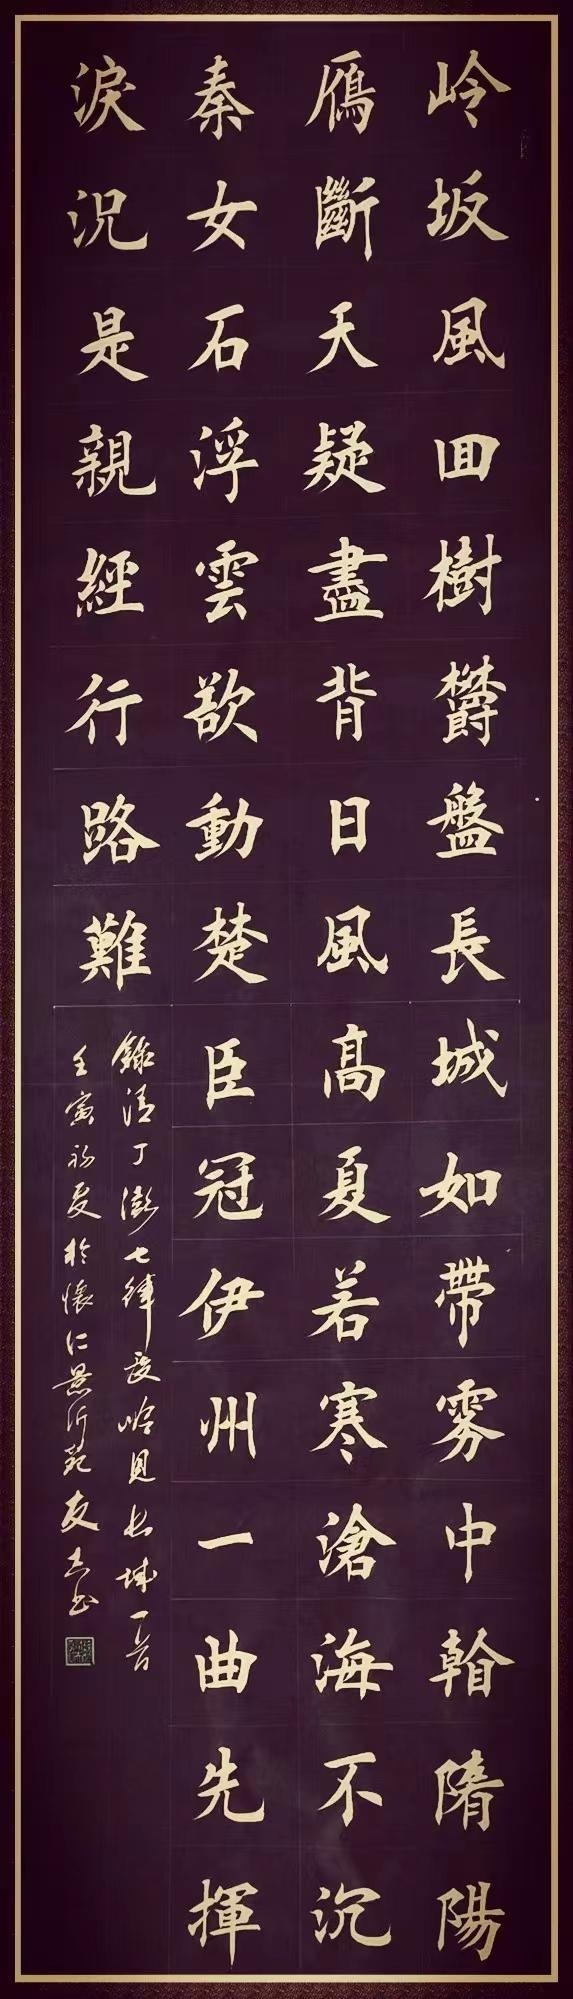 岭坂風回樹欝盤長城如帶雾中翰隋陽
鴈斷天疑盡背日風髙夏若寒滄海不沉
秦女石浮雲欲動楚臣冠伊州一曲先揮
淚况是親經行路難
錄清丁澎七律 岭 長城一首
壬寅初夏於懷仁景沂苑友 書